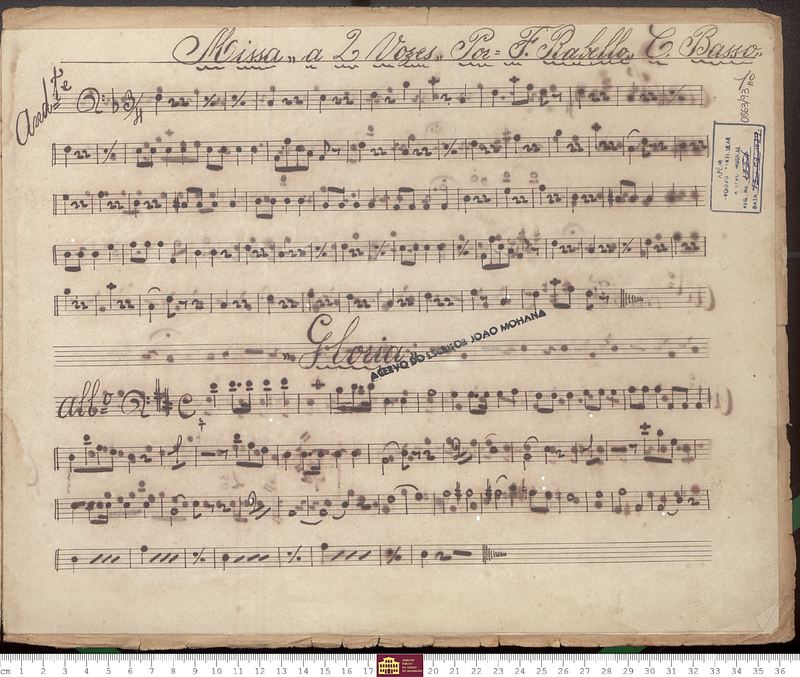 Missa, a 2 Vozes, Por = F. Rabello, C. Basso.
And.te
3/4
0863/95
Gloria
ACERVO DO ESCRITOR JOÃO MOHANA
all.o C
cm 1 2 3 4 5 6 7 8 9 10 11 12 13 14 15 16 17 20 21 22 23 24 25 26 27 28 29 30 31 32 33 34 35 36